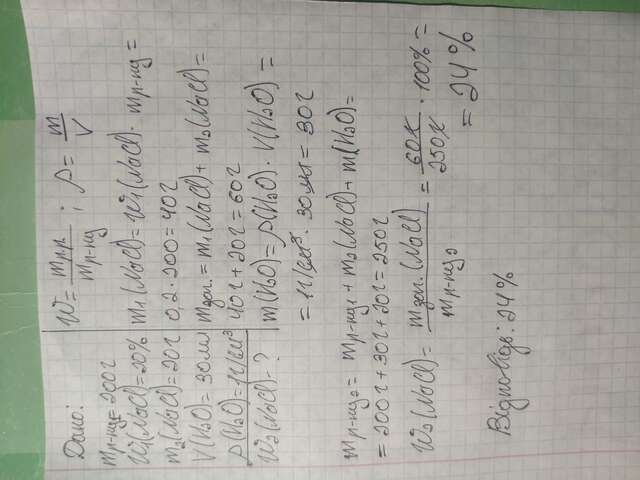 Дано:
mр-ну1=200г
W1(NaCl)=20%
m2(NaCl)=20г
V(H2O)=30мл
ρ(H2O)=1г/см³
W2(NaCl)-?
W = mр.р / mр-ну ; ρ = m / V
m1(NaCl)=W1(NaCl)·mр-ну=
0,2·200=40г
mзаг.=m1(NaCl)+m2(NaCl)=
40г+20г=60г
m(H2O)=ρ(H2O)·V(H2O)=
=1г/см³·30мл=30г
mр-ну2=mр-ну1+m2(NaCl)+m(H2O)=
=200г+30г+20г=250г
W2(NaCl)= mзаг.(NaCl) / mр-ну2 = 60г / 250г · 100%=
=24%
Відповідь: 24%